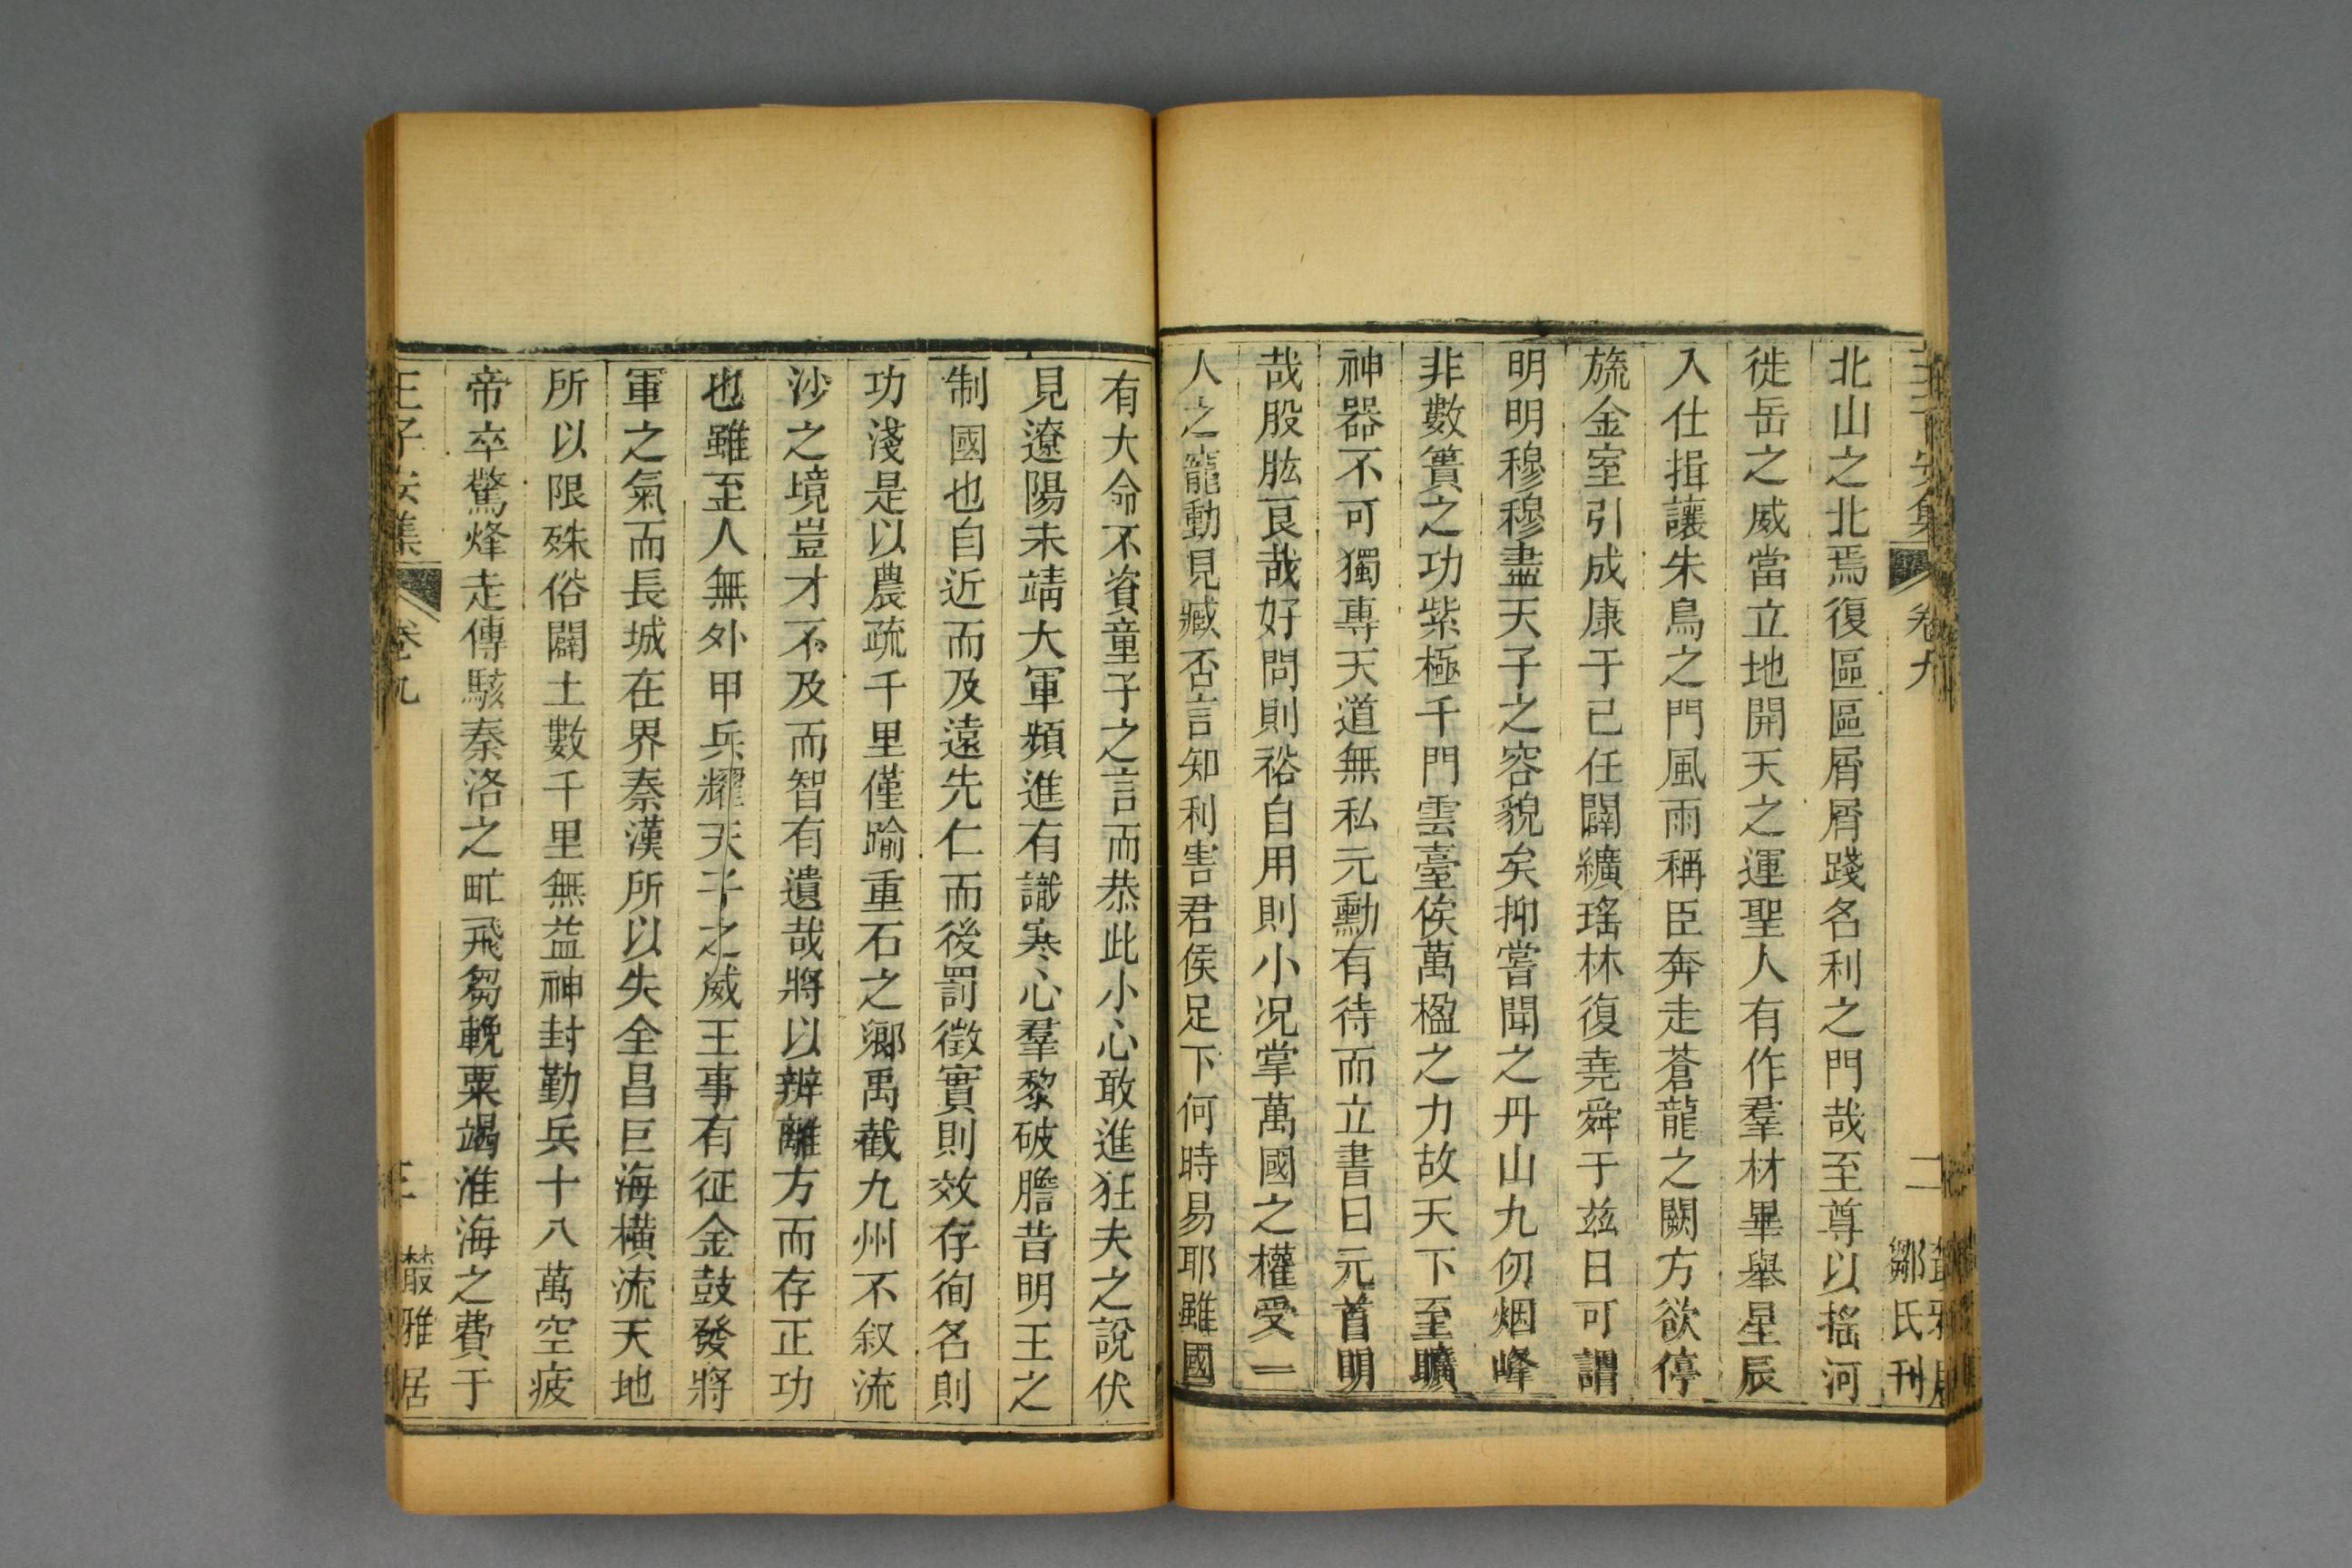 王子安集
卷九
二
叢雅居
鄒氏刊
北山之北焉復區區屑屑踐名利之門哉至尊以搖河
徙岳之威當立地開天之運聖人有作羣材畢舉星辰
入仕揖讓朱鳥之門風雨稱臣奔走蒼龍之闕方欲停
旒金室引成康于已任闢纊瑤林復堯舜于兹日可謂
明明穆穆盡天子之容貌矣抑嘗聞之丹山九仞烟峰
非數簣之功紫極千門雲臺俟萬楹之力故天下至曠
神器不可獨專天道無私元勳有待而立書曰元首明
哉股肱良哉好問則裕自用則小况掌萬國之權受一
人之寵動見臧否言知利害君侯足下何時易耶雖國
有大命不資童子之言而恭此小心敢進狂夫之說伏
見遼陽未靖大軍頻進有識寒心羣黎破膽昔明王之
制國也自近而及遠先仁而後罰徵實則效存徇名則
功淺是以農疏千里僅踰重石之鄉禹截九州不叙流
沙之境豈才不及而智有遺哉將以辨離方而存正功
也雖至人無外甲兵耀天子之威王事有征金鼓發將
軍之氣而長城在界秦漢所以失全昌巨海橫流天地
所以限殊俗闢土數千里無益神封勤兵十八萬空疲
帝卒驚烽走傳駭秦洛之甿飛芻輓粟竭淮海之費于
王子安集
卷九
三
叢雅居